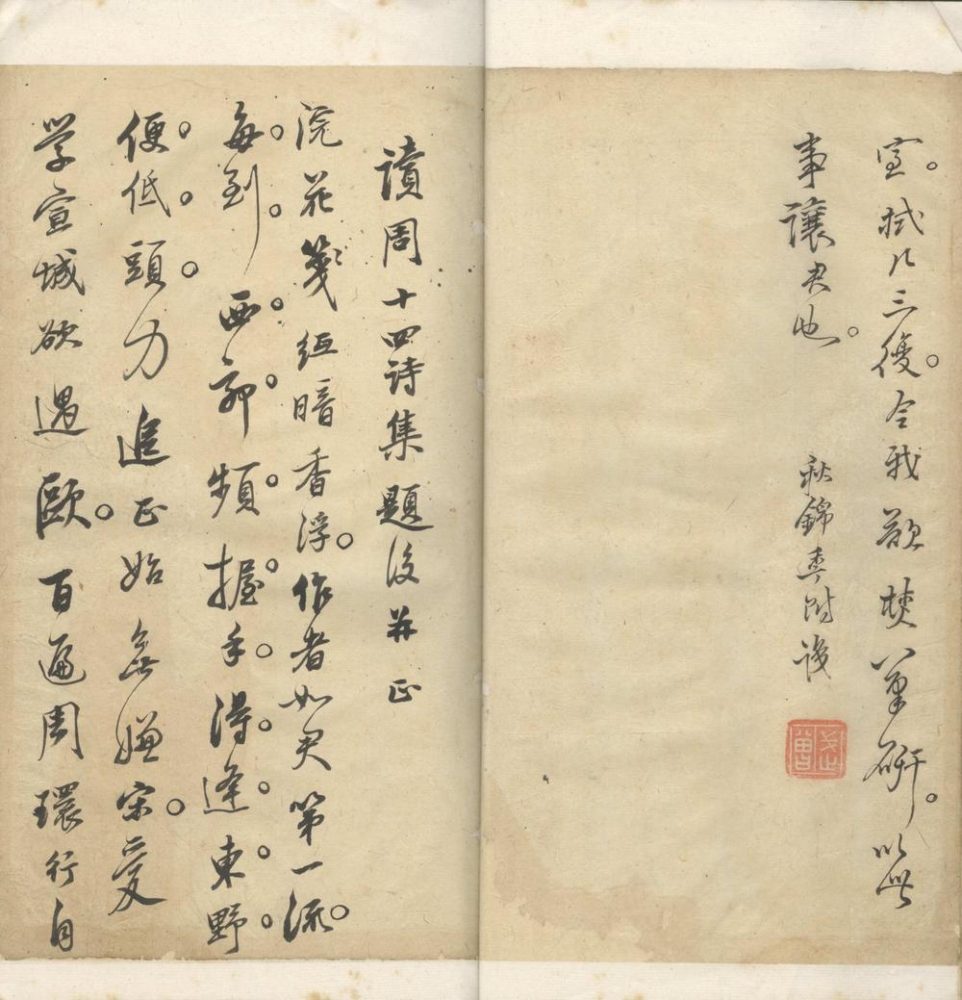 室拭几三復令我欲焚筆研以此
事讓君也
秋錦李附識
讀周十四詩集題後并正
浣花箋紙暗香浮作者如君第一流
每到西郭頻握手得逢東野
便低頭力追正始無嫌宋愛
学宣城欲過歐百遍周環行自